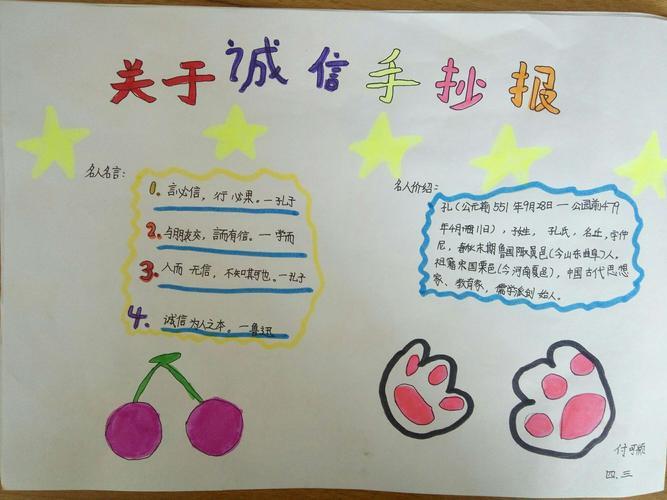 关于诚信手抄报
名人名言:
1. 言必信,行必果。一孔子
2. 与朋友交,言而有信。一学而
3. 人而无信,不知其可也。一孔子
4. 诚信为人之本。一鲁迅
名人介绍:
孔(公元前551年9月28日一公元前479
年4月11日),子姓,孔氏,名丘,字仲
尼,春秋末期鲁国陬邑(今山东曲阜)人。
祖籍宋国栗邑(今河南夏邑),中国古代思想
家、教育家,儒学派创始人。
四、三